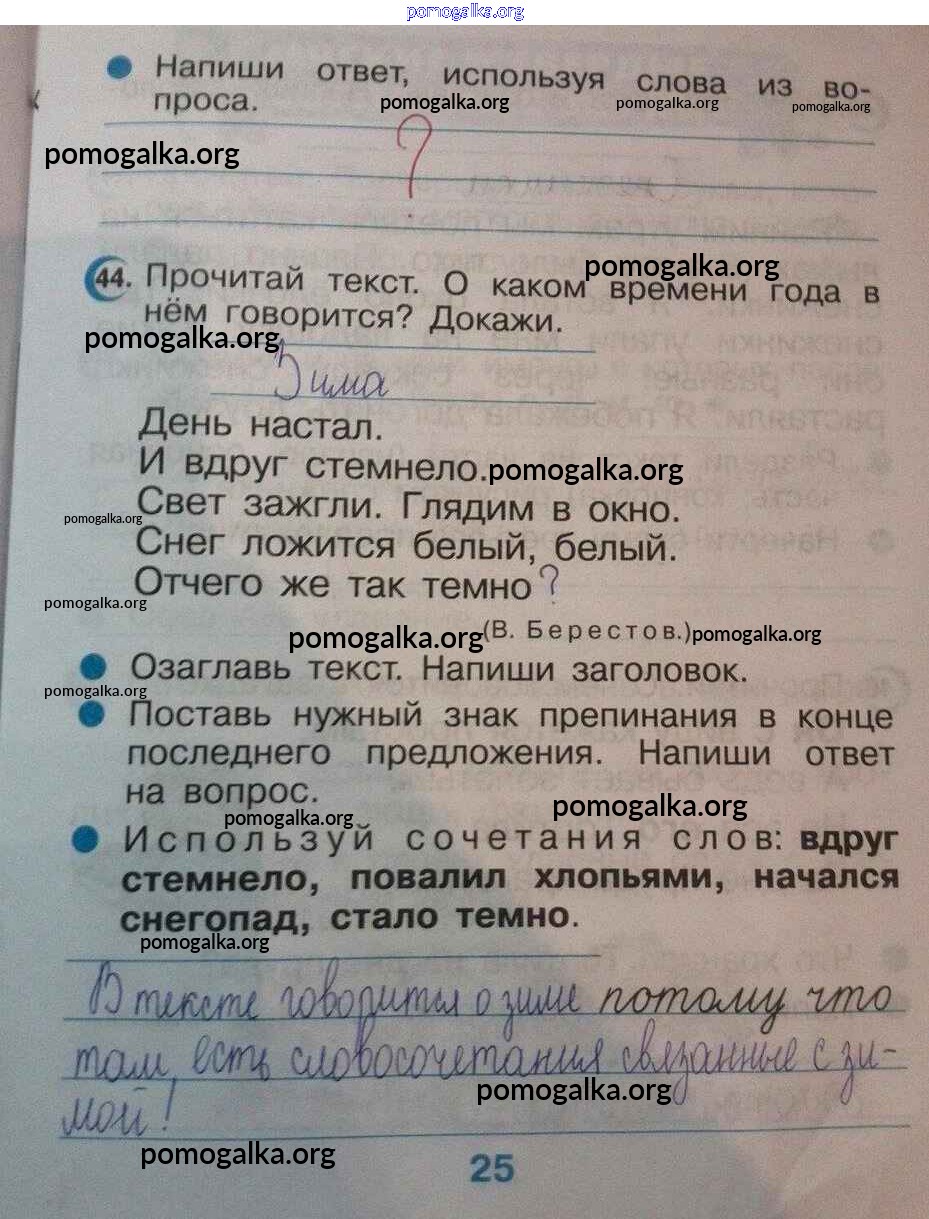 pomogalka.org
Напиши ответ, используя слова из во-
проса.
pomogalka.org pomogalka.org pomogalka.org
?
pomogalka.org
44. Прочитай текст. О каком времени года в
pomogalka.org
нём говорится? Докажи.
pomogalka.org
Зима
День настал.
И вдруг стемнело.
pomogalka.org
Свет зажгли. Глядим в окно.
pomogalka.org
Снег ложится белый, белый.
Отчего же так темно?
pomogalka.org
pomogalka.org (В. Берестов.) pomogalka.org
Озаглавь текст. Напиши заголовок.
pomogalka.org
Поставь нужный знак препинания в конце
последнего предложения. Напиши ответ
на вопрос.
pomogalka.org pomogalka.org
Используй сочетания слов: вдруг
стемнело, повалил хлопьями, начался
снегопад, стало темно.
pomogalka.org
В тексте говорится о зиме потому что
там есть словосочетания связанные с зи-
pomogalka.org
мой!
pomogalka.org
25